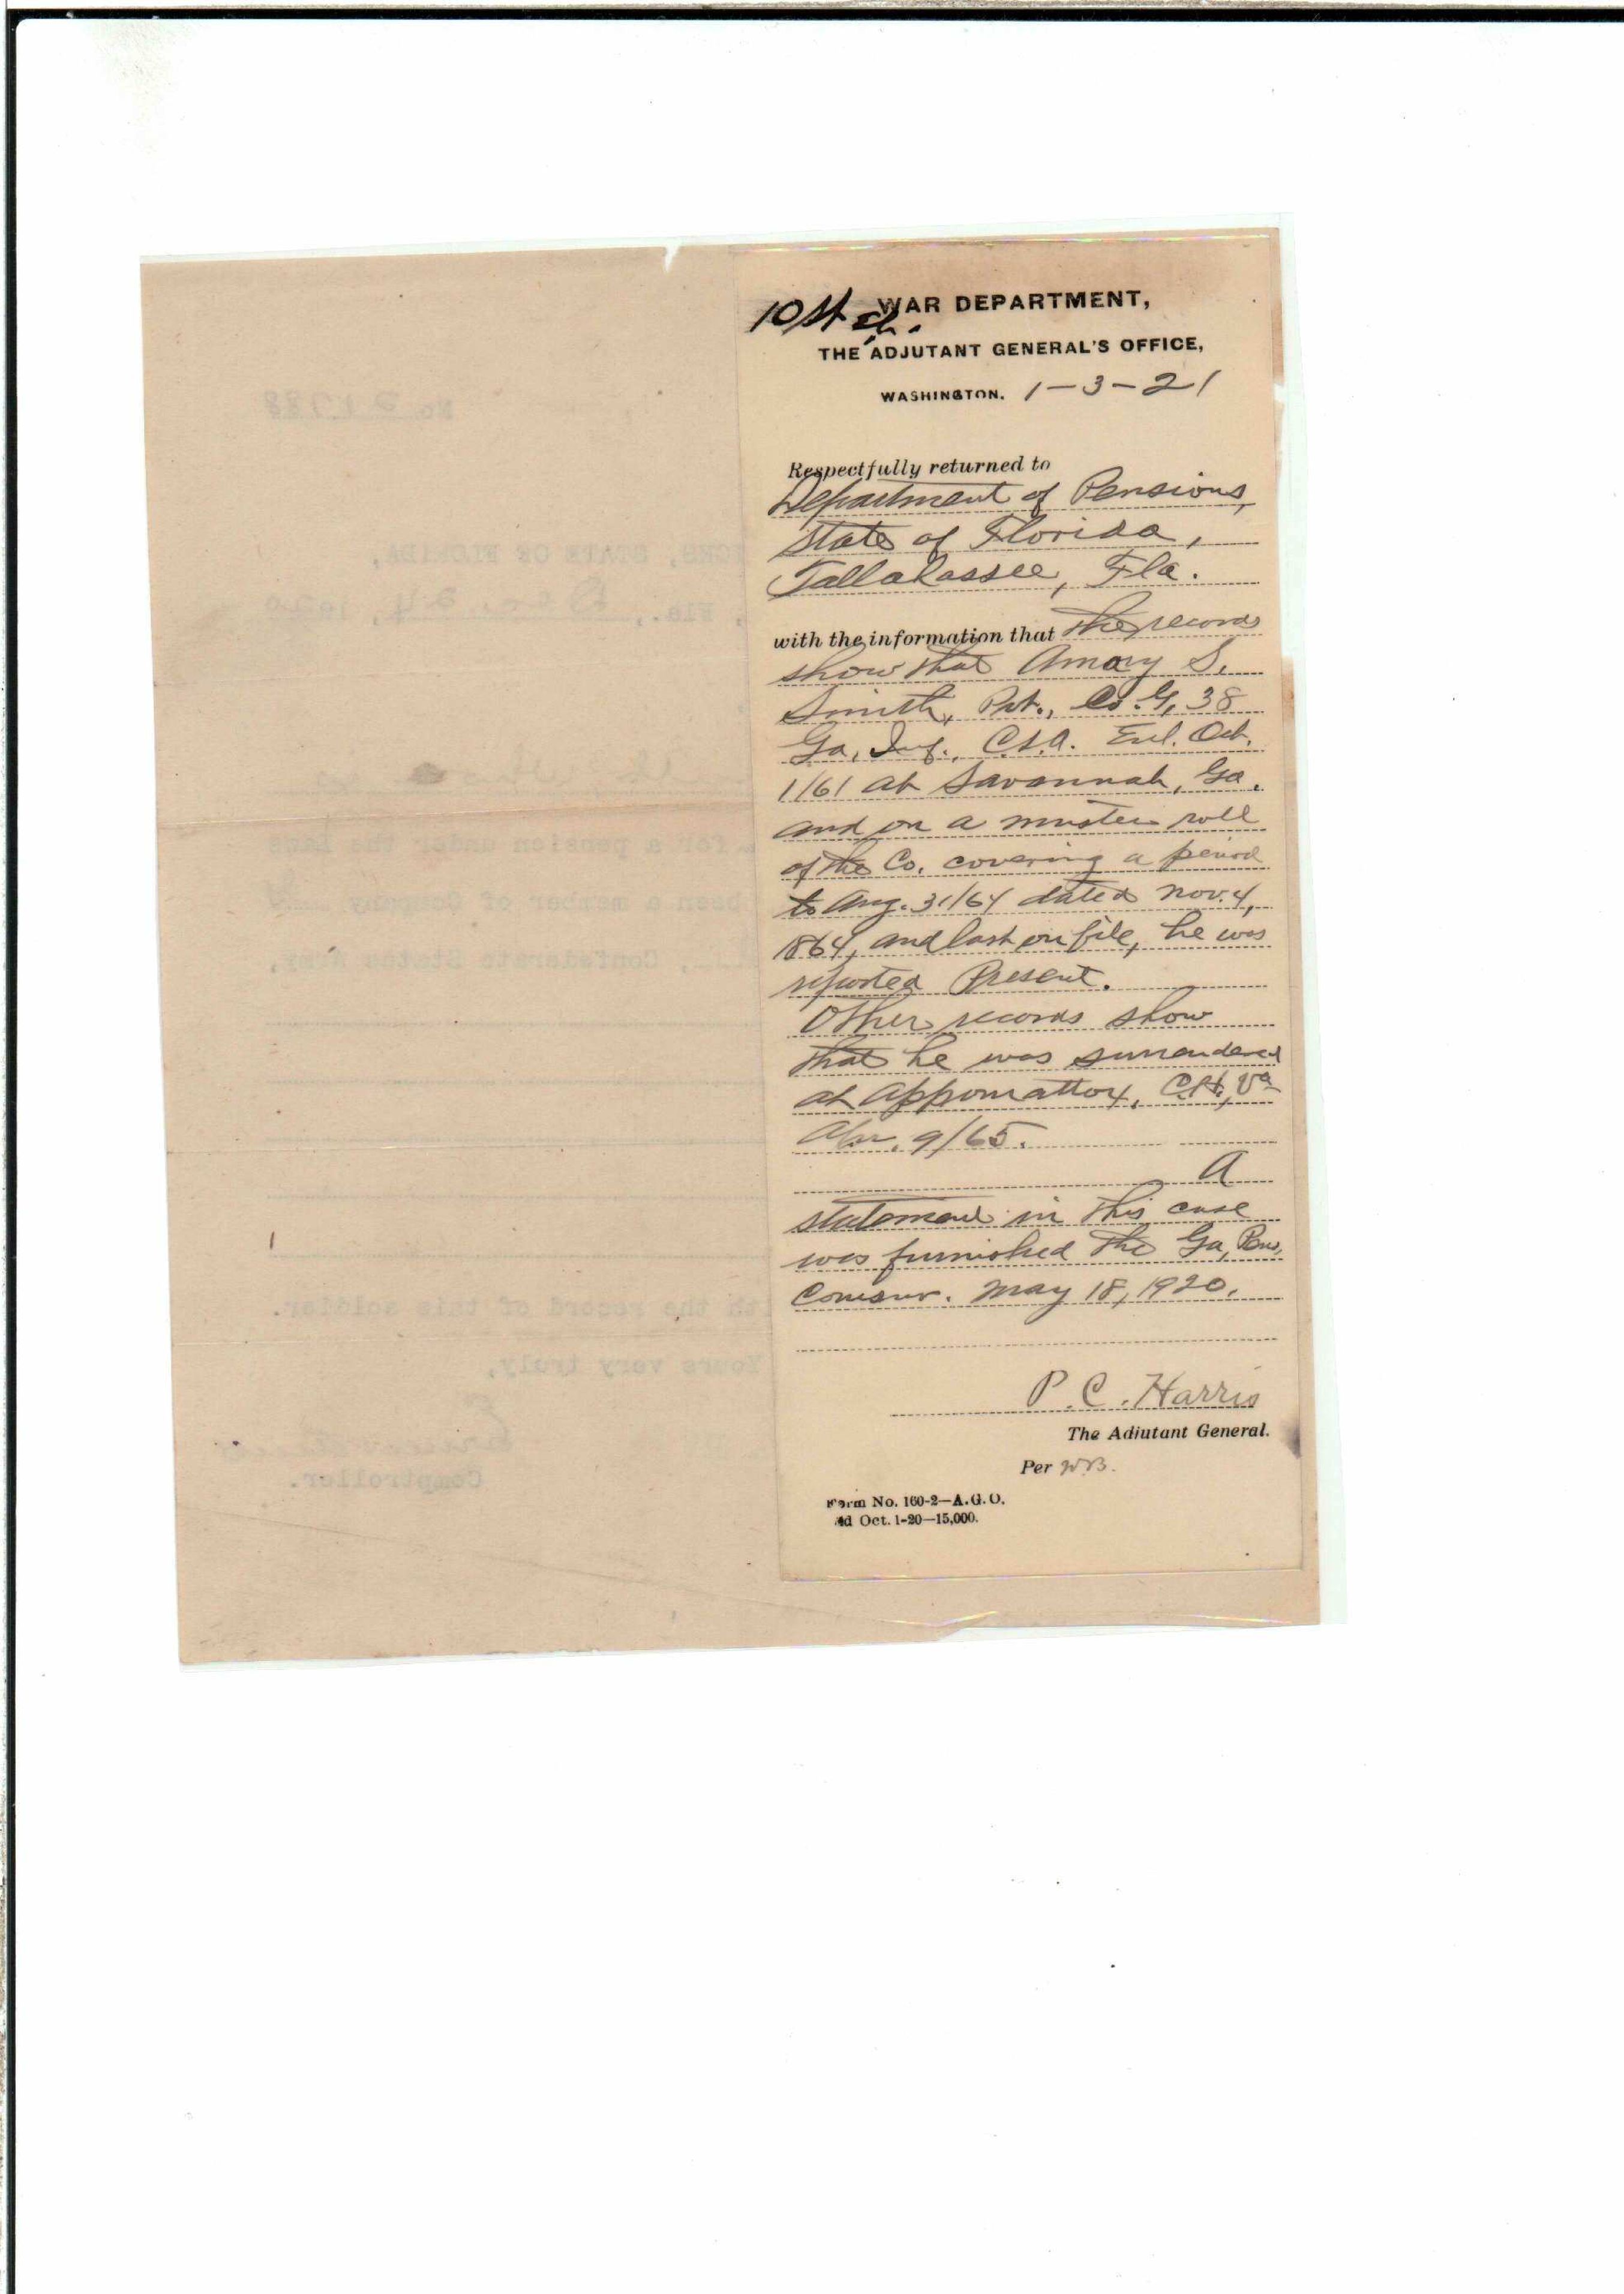 WAR DEPARTMENT,
THE ADJUTANT GENERAL'S OFFICE,
WASHINGTON. 1-3-21
Respectfully returned to
Department of Pensions,
State of Florida,
Tallahassee, Fla.
with the information that the records
show that Amory S.
Smith, Pvt., Co. G, 38
Ga. Inf., C.S.A. Enl. Oct.
1/61 at Savannah, Ga.
and on a muster roll
of the Co. covering a period
to Aug. 31/64 dated Nov. 4,
1864, and last on file, he was
reported Present.
Other records show
that he was surrendered
at Appomattox, C.H., Va
Apr. 9/65.
A
statement in this case
was furnished the Ga. Pens.
Comsnr. May 18, 1920.
P. C. Harris
The Adjutant General.
Per W.B.
Form No. 160-2—A.G.O.
Ed Oct. 1-20—15,000.
No.
STATE OF FLORIDA,
Fla., Dec. 24, 1920
for a pension under the laws
been a member of Company
Confederate States Army,
the record of this soldier.
Yours very truly,
Comptroller.